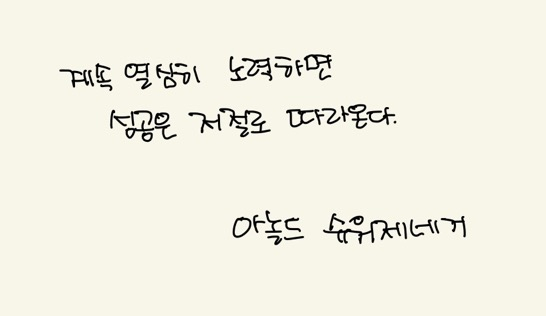 계속 열심히 노력하면
성공은 저절로 따라온다.
아놀드 슈워제네거